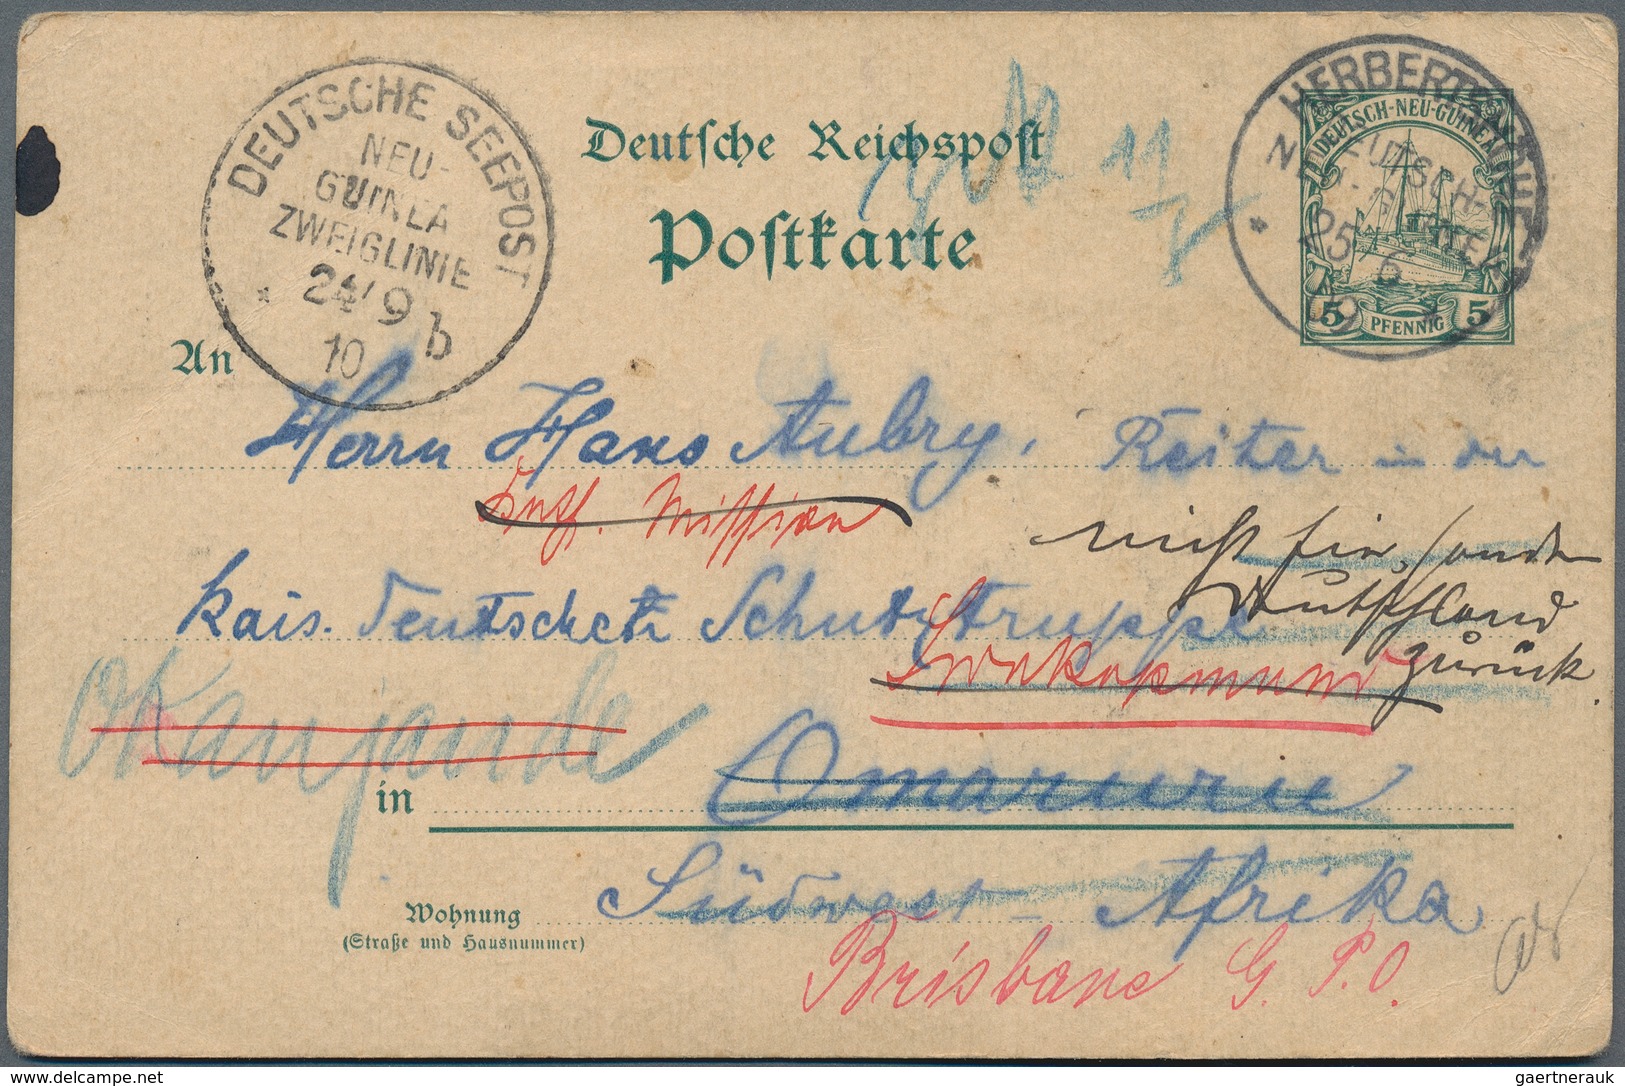 Deutsche Reichspost
Postkarte
DEUTSCHE SEEPOST
NEU-
GUINEA
ZWEIGLINIE
24/9
10 b
HERBERTSHÖHE
DEUTSCH-
NEU-GUINEA
25/6
09
DEUTSCH-NEU-GUINEA
5 PFENNIG 5
11
7
An
Herrn Hans Aubry, Reiter in der
Mission
nicht hier, sondern
kais. deutschen Schutztruppe
Deutschland
Swakopmund
zurück.
Okanjande
in Omaruru
Südwest-Afrika
Wohnung
(Straße und Hausnummer)
Brisbane G. P. O.
gaertnerauk